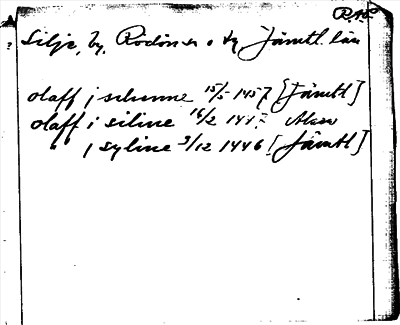 R.A.
Silje, by, Rödöns s o tg Jämtl. län
olaff j schunne 15/5 1457 [Jämtl]
olaff i siline 16/2 144
" j syline 3/12 1446 [Jämtl]